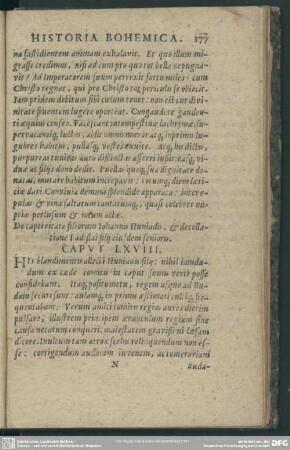 HISTORIA BOHEMICA. 177
na fastidientem animam exhalavit. Et quo illum mi-
grasse credimus, nisi ad eum pro quo tot bella depugna-
vit? Ad Imperatorem suum perrexit fortis miles: cum
Christo regnat, qui pro Christo tot periculis se obiecit.
Iam pridem debitum sibi cœlum tenet: non est cur divi-
nitate fruentem lugere oporteat. Congaudere gaudenti
æquius censeo. Facessant intempestivæ lachrymæ,
pervacaniq, luctus; absit omnis mœror atq, inprimis lu-
gubres habitus, pullasq, vestes exuite. Atq, hu dictis,
purpureas tunicas auro distinctas afferri iussit: easq, vi-
duæ ac filys dono dedit. Puellas quoq, sua dignitate do-
natas, mutare habitum increpavit: totumq, diem læti-
ciæ dari. Convivia demum splendide apparata: inter e-
pulas & vina saltatum cantatumq, quasi celebres nu-
ptiæ
De captivitate filiorum Iohannis Huniadis, & decolla-
tione Ladislai filij eiusdem senioris.
CAPVT LXVIII.
HIs blandimentis allecti Huniadis filij: nihil
dum ex cæde comitis in caput suum verti posse
confidebant. Itaq, positometu, regem usque ad Bu-
dam secuti sunt: aulamq, in primis æstimati cultiq, fre-
quentabant. Verum amici comitis regias aures dietim
pulsare, illustrem principem avunculum regium sine
causa necatum conqueri: maiestatem gravissime læsam
dicere. Inultum tam atrox scelus relinquendum non es-
se: corrigendam audaciam iuvenum, ac temerariam
N
auda-